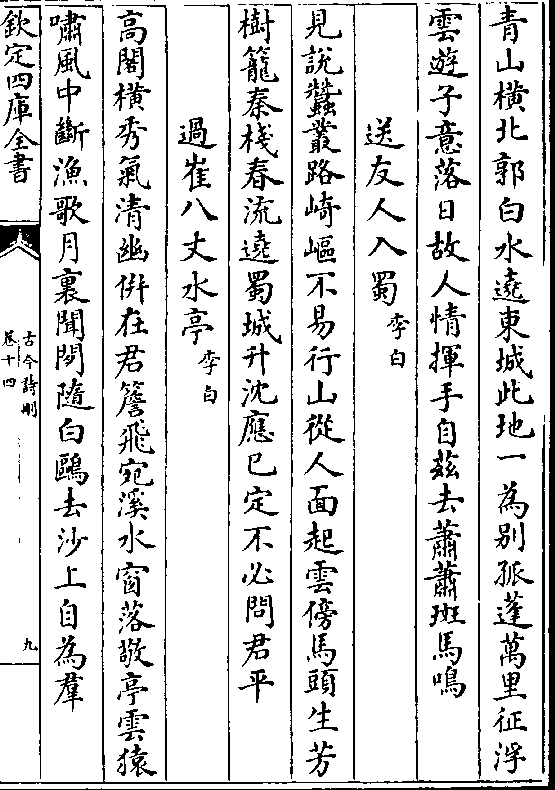 青山橫北郭白水遶東城此地一為别孤蓬萬里征浮
雲遊子意落日故人情揮手自兹去蕭蕭班馬鳴
送友人入蜀 李白
見說蠶叢路崎嶇不易行山從人面起雲傍馬頭生芳
樹籠秦棧春流遶蜀城升沈應已定不必問君平
過崔八丈水亭 李白
高閣橫秀氣清幽併在君簷飛宛溪水窗落敬亭雲猿
嘯風中斷漁歌月裏聞閒隨白鷗去沙上自為羣
欽定四庫全書
古今詩刪
卷十四
九